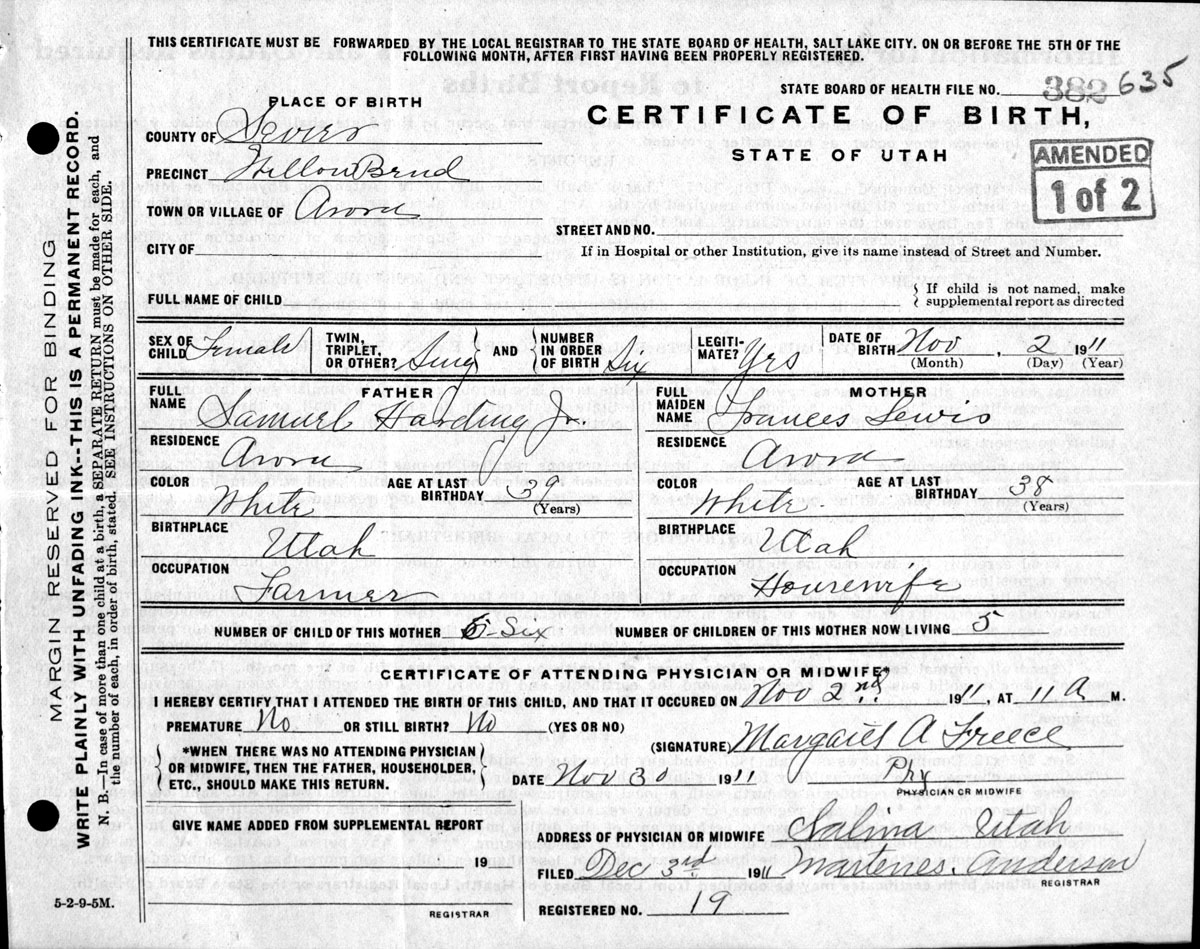 THIS CERTIFICATE MUST BE FORWARDED BY THE LOCAL REGISTRAR TO THE STATE BOARD OF HEALTH, SALT LAKE CITY. ON OR BEFORE THE 5TH OF THE
FOLLOWING MONTH, AFTER FIRST HAVING BEEN PROPERLY REGISTERED.
STATE BOARD OF HEALTH FILE NO. 382 635
PLACE OF BIRTH
CERTIFICATE OF BIRTH,
COUNTY OF Sevier
STATE OF UTAH
AMENDED
1 of 2
PRECINCT Willow Bend
TOWN OR VILLAGE OF Arora
STREET AND NO.
CITY OF
If in Hospital or other Institution, give its name instead of Street and Number.
FULL NAME OF CHILD
If child is not named, make
supplemental report as directed
SEX OF CHILD Female
TWIN, TRIPLET, OR OTHER? Sing
AND
NUMBER IN ORDER OF BIRTH Six
LEGITI- MATE? Yes
DATE OF BIRTH Nov , 2 1911
(Month) (Day) (Year)
FATHER
FULL NAME Samuel Harding Jr.
RESIDENCE
Arora
COLOR White
AGE AT LAST BIRTHDAY 39
(Years)
BIRTHPLACE
Utah
OCCUPATION
Farmer
MOTHER
FULL MAIDEN NAME Frances Lewis
RESIDENCE
Arora
COLOR White
AGE AT LAST BIRTHDAY 38
(Years)
BIRTHPLACE
Utah
OCCUPATION
Housewife
NUMBER OF CHILD OF THIS MOTHER 6-Six
NUMBER OF CHILDREN OF THIS MOTHER NOW LIVING 5
CERTIFICATE OF ATTENDING PHYSICIAN OR MIDWIFE*
I HEREBY CERTIFY THAT I ATTENDED THE BIRTH OF THIS CHILD, AND THAT IT OCCURED ON Nov 2nd 1911, AT 11 A M.
PREMATURE No OR STILL BIRTH? No (YES OR NO)
(SIGNATURE) A Freece
*WHEN THERE WAS NO ATTENDING PHYSICIAN
OR MIDWIFE, THEN THE FATHER, HOUSEHOLDER,
ETC., SHOULD MAKE THIS RETURN.
DATE Nov 30 1911
Phy
PHYSICIAN OR MIDWIFE
GIVE NAME ADDED FROM SUPPLEMENTAL REPORT
19
REGISTRAR
ADDRESS OF PHYSICIAN OR MIDWIFE Salina Utah
FILED Dec 3rd 1911 Anderson
REGISTRAR
REGISTERED NO. 19
5-2-9-5M.
MARGIN RESERVED FOR BINDING
WRITE PLAINLY WITH UNFADING INK--THIS IS A PERMANENT RECORD.
N. B.—In case of more than one child at a birth, a SEPARATE RETURN must be made for each, and
the number of each, in order of birth, stated. SEE INSTRUCTIONS ON OTHER SIDE.